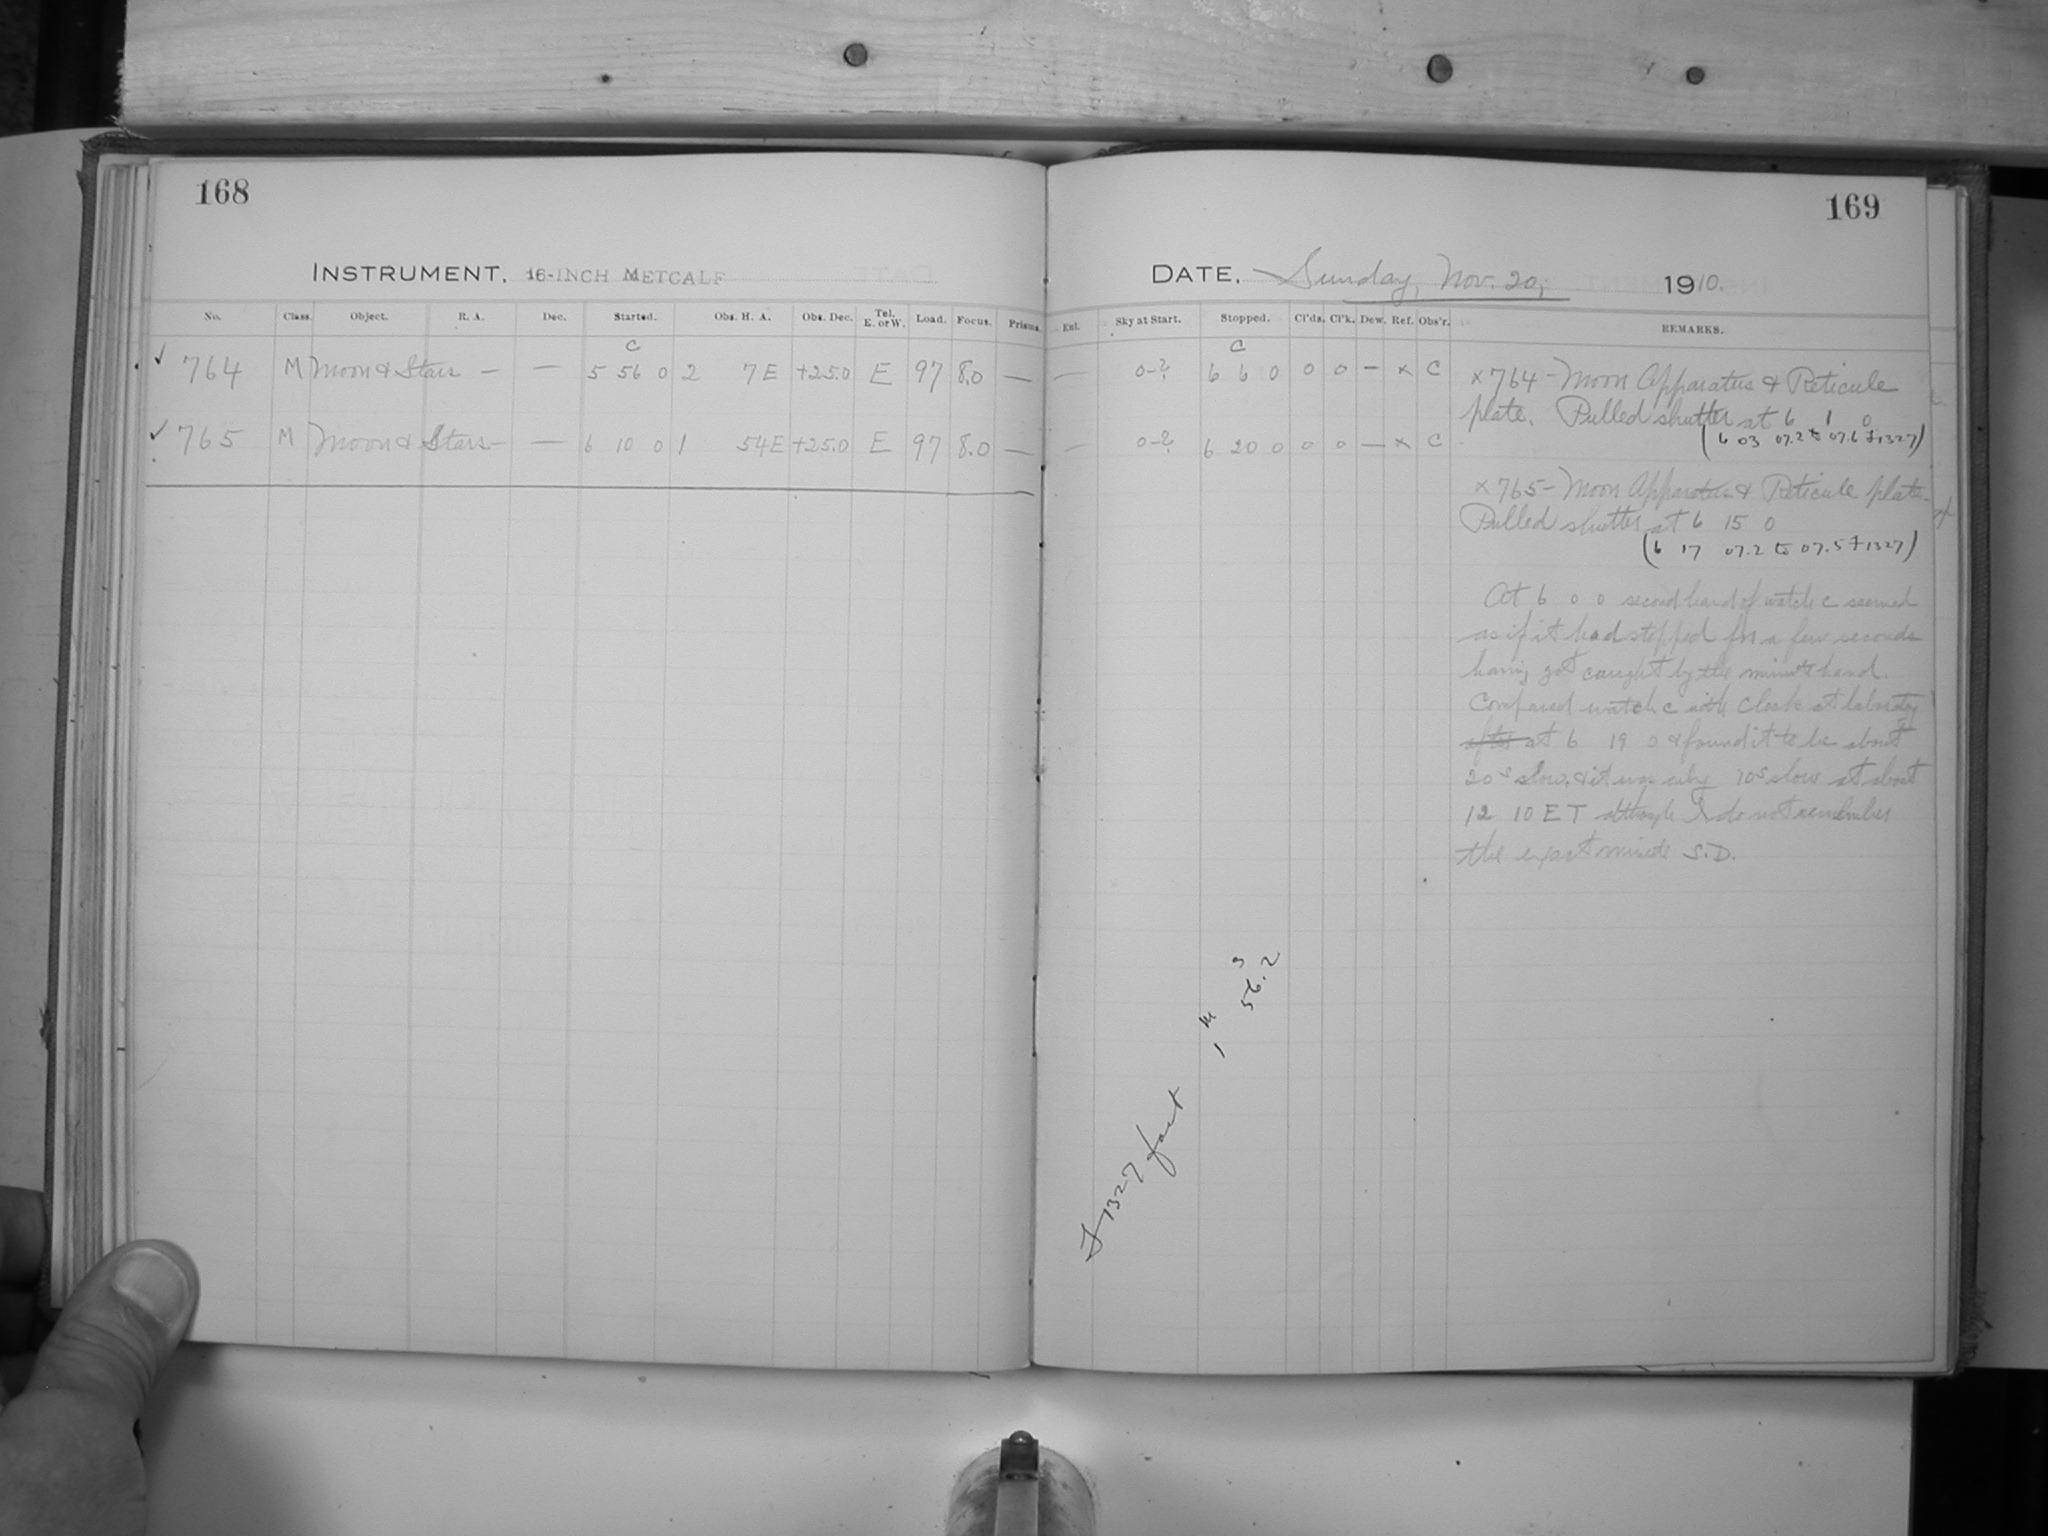 168
INSTRUMENT. 16-INCH METCALF
No. Class. Object. R. A. Dec. Started. Obs. H. A. Obs. Dec. Tel. E. or W. Load. Focus. Prisms.
C
✓ 764 M Moon & Stars — — 5 56 0 2 7 E +25.0 E 97 8.0 —
✓ 765 M Moon & Stars — — 6 10 0 1 54 E +25.0 E 97 8.0 —
169
DATE. Sunday, Nov. 20, 1910.
Exl. Sky at Start. Stopped. Cl'ds. Cl'k. Dew. Ref. Obs'r. REMARKS.
C
— 0-2 6 6 0 0 0 — x C
— 0-2 6 20 0 0 0 — x C
x 764 - Moon Apparatus & Reticule
plate. Pulled shutter at 6 1 0
(6 03 07.2 to 07.6 F1327)
x 765 - Moon Apparatus & Reticule plate.
Pulled shutter at 6 15 0
(6 17 07.2 to 07.5 F1327)
At 6 0 0 second hand of watch C seemed
as if it had stopped for a few seconds
having got caught by the minute hand.
Compared watch C with clock at laboratory
after at 6 19 0 & found it to be about
20s slow, & it was only 10s slow at about
12 10 E T although I do not remember
the exact minute S.D.
F1327 fast 1m 56.2s